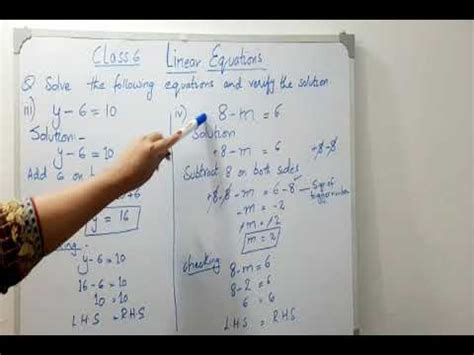 Class 6 Linear Equations
Q Solve the following equations and verify the solution
iii) y - 6 = 10
Solution:-
y - 6 = 10
Add 6 on b
+6
y = 16
king
y - 6 = 10
16 - 6 = 10
10 = 10
L.H.S = R.H.S
iv) 8 - m = 6
Solution
+8 - m = 6 +8 - 8
Subtract 8 on both sides
+8 - 8 - m = 6 - 8 — Sign of
- m = - 2
m = 2
checking
8 - m = 6
8 - 2 = 6
6 = 6
L.H.S = R.H.S